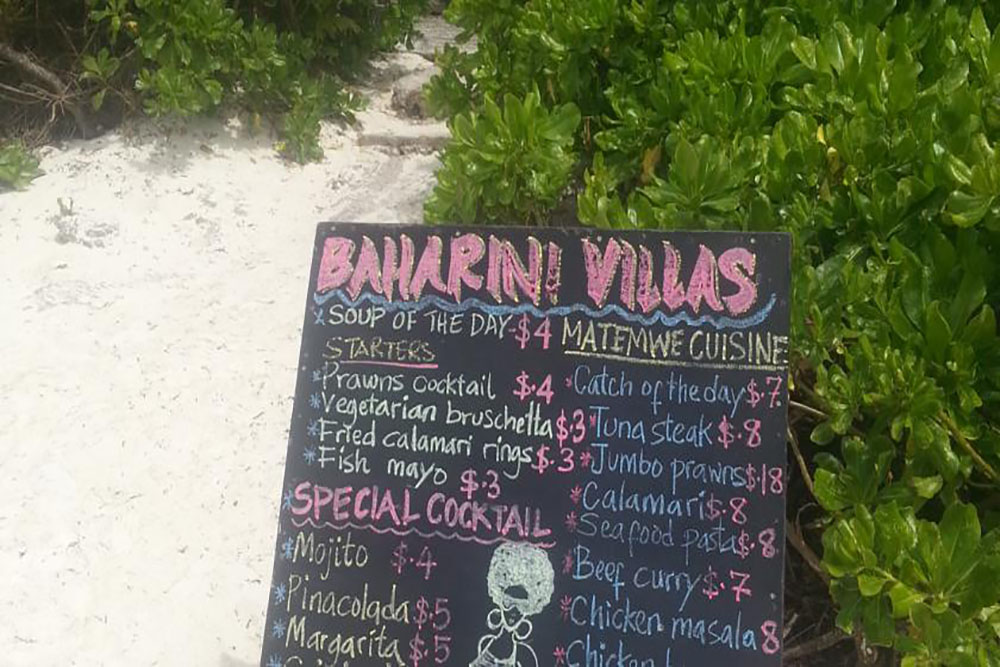 BAHARINI VILLAS
* SOUP OF THE DAY-$4
STARTERS
* Prawns cocktail $.4
* Vegetarian bruschetta $3
* Fried calamari rings $.3
* Fish mayo $.3
* SPECIAL COCKTAIL
* Mojito $.4
* Pinacolada $.5
* Margarita $.5
MATEMWE CUISINE
* Catch of the day $.7
* Tuna steak $.8
* Jumbo prawns $18
* Calamari $.8
* Seafood pasta $.8
* Beef curry $.7
* Chicken masala 8
* Chicken